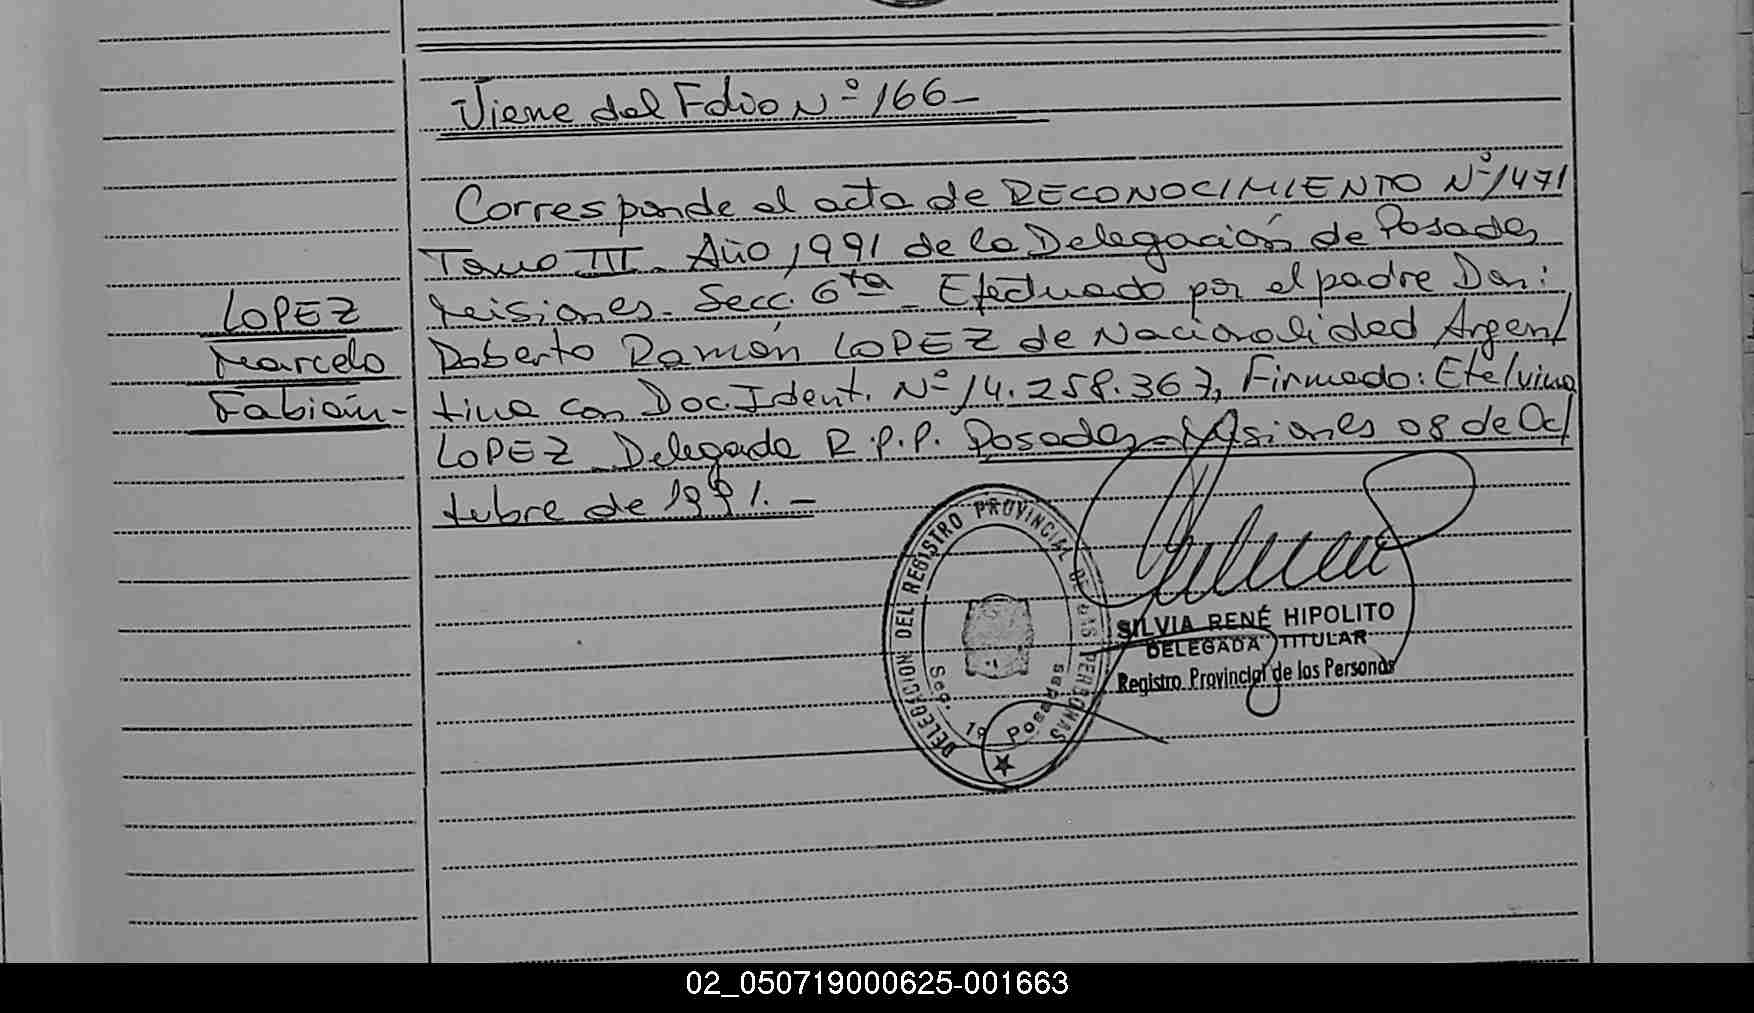 Viene del Folio Nº 166-
Corresponde al acta de RECONOCIMIENTO Nº 1471
Tomo III. Año 1991 de la Delegación de Posadas
Misiones. Secc. 6ta - Efectuado por el padre Don:
Roberto Ramón LOPEZ de Nacionalidad Argen/
tina con Doc. Ident. Nº 14.258.367, Firmado: Etelvina
LOPEZ Delegada R.P.P. Posadas - Misiones 08 de Oc/
tubre de 1991. -
LOPEZ
Marcelo
Fabián-
DELEGACION DEL REGISTRO PROVINCIAL DE LAS PERSONAS
Posadas
SILVIA RENÉ HIPOLITO
DELEGADA TITULAR
Registro Provincial de las Personas
02_050719000625-001663